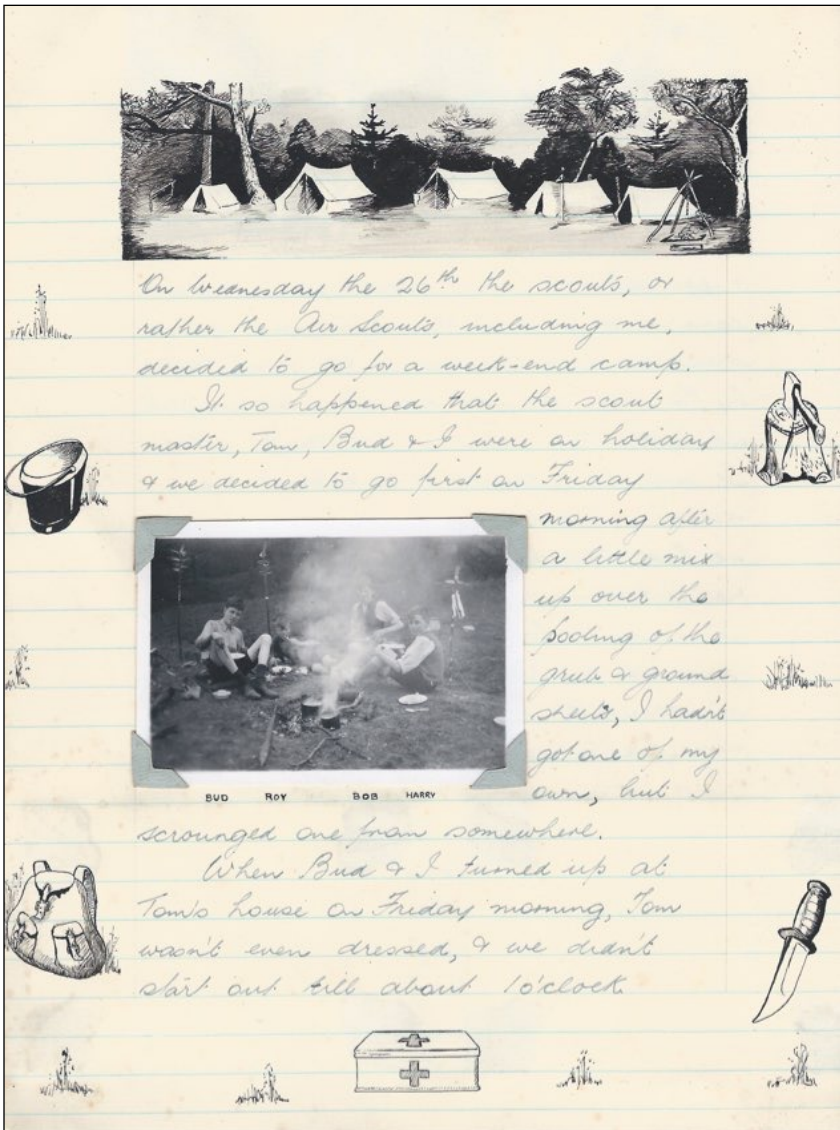 On Wednesday the 26th the scouts, or
rather the Air Scouts, including me,
decided to go for a week-end camp.
It so happened that the scout
master, Tom, Bud & I were on holiday
& we decided to go first on Friday
morning after
a little mix
up over the
pooling of the
grub & ground
sheets, I hadn't
got one of my
own, but I
BUD ROY BOB HARRY
scrounged one from somewhere.
When Bud & I turned up at
Tom's house on Friday morning, Tom
wasn't even dressed, & we didn't
start out till about 1 o'clock